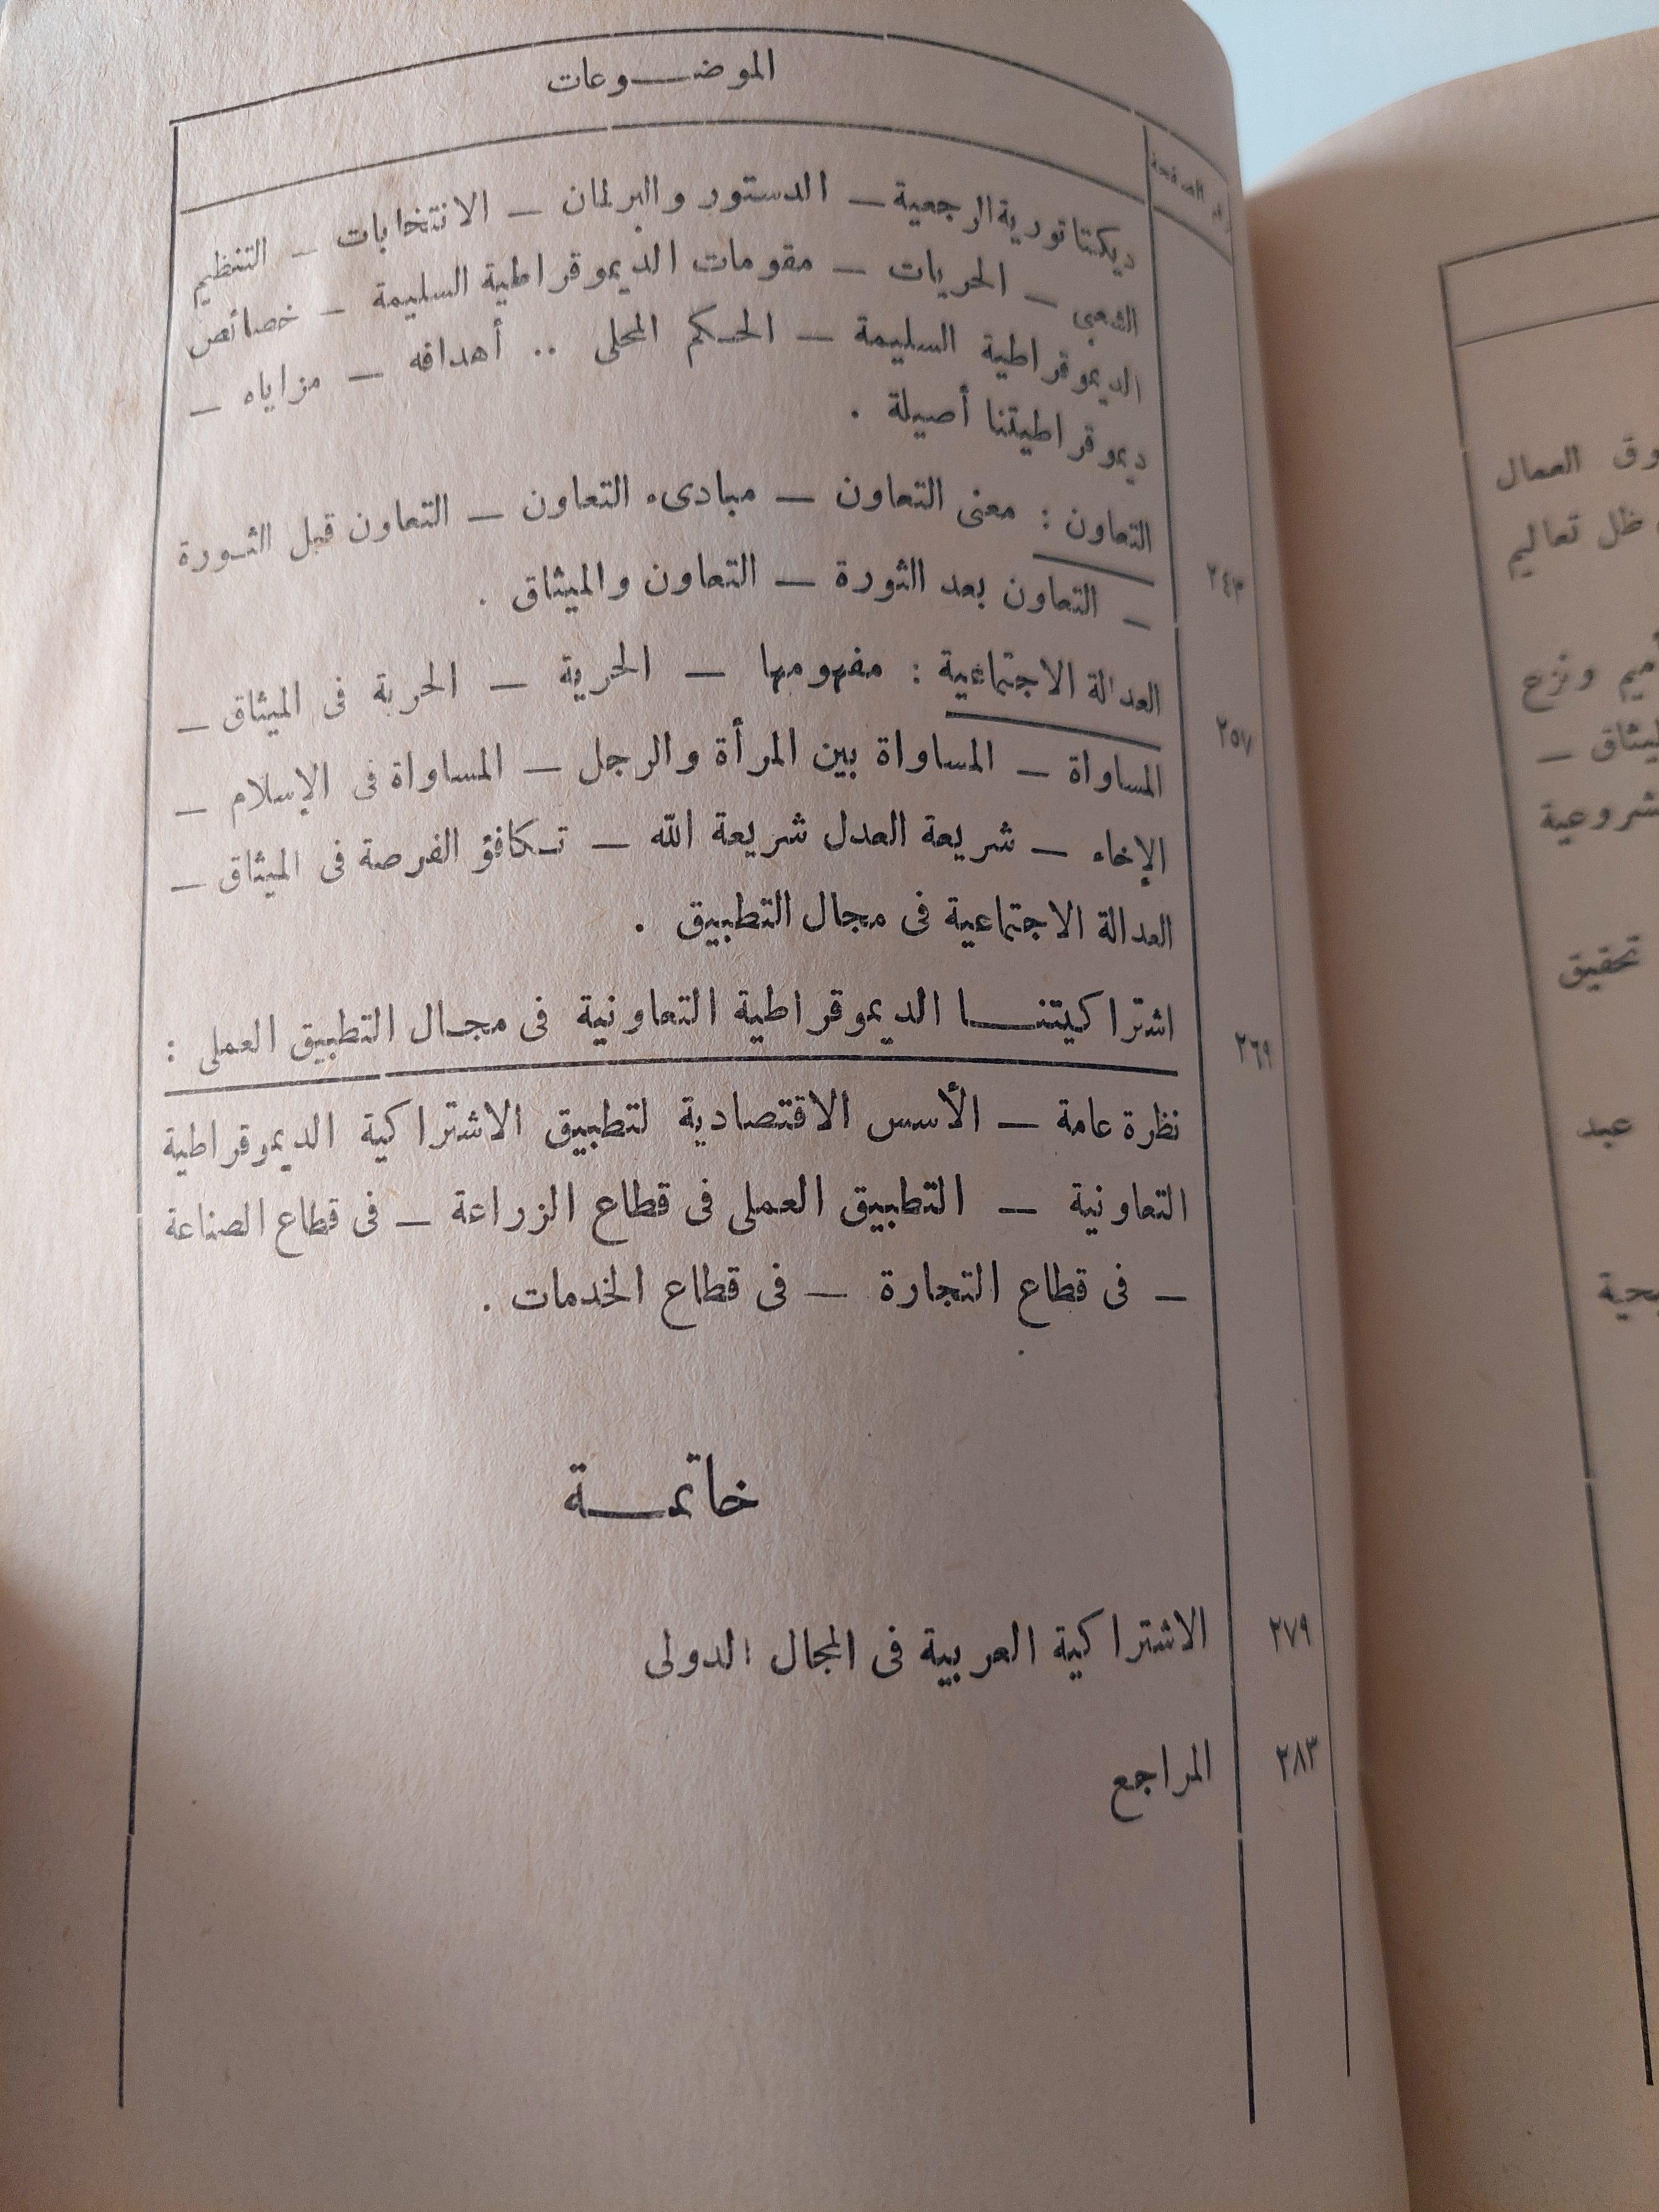 الموضوعات
رقم الصفحة
ديكتاتورية الرجعية — الدستور والبرلمان — الانتخابات — التنظيم
الشعبى — الحريات — مقومات الديموقراطية السليمة — خصائص
الديموقراطية السليمة — الحكم المحلى .. أهدافه — مزاياه —
ديموقراطيتنا أصيلة .
التعاون : معنى التعاون — مبادىء التعاون — التعاون قبل الثورة
٢٤٣
— التعاون بعد الثورة — التعاون والميثاق .
العدالة الاجتماعية : مفهومها — الحرية — الحرية فى الميثاق —
٢٥٧
المساواة — المساواة بين المرأة والرجل — المساواة فى الإسلام —
الإخاء — شريعة العدل شريعة الله — تكافؤ الفرصة فى الميثاق —
العدالة الاجتماعية فى مجال التطبيق .
اشتراكيتنا الديموقراطية التعاونية فى مجال التطبيق العملى :
٢٦٩
نظرة عامة — الأسس الاقتصادية لتطبيق الاشتراكية الديموقراطية
التعاونية — التطبيق العملى فى قطاع الزراعة — فى قطاع الصناعة
— فى قطاع التجارة — فى قطاع الخدمات .
خاتمة
٢٧٩ الاشتراكية العربية فى المجال الدولى
٢٨٣ المراجع
العمال
ظل تعاليم
ونزع
تحقيق
عبد